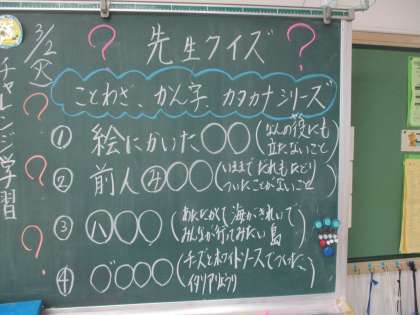 3/2
(火)
チャレンジ学習
? 先生クイズ ?
ことわざ、かん字、カタカナシリーズ
① 絵にかいた○○(なんの役にも
立たないこと)
② 前人○○○(いままでだれもたどり
ついたことがないこと)
③ ハ○○○(あたたかくて海がきれいで
みんなが行ってみたい島)
④ ○゛○○○(チーズとホワイトソースでつくった、
イタリアりょうり)
?
?
?